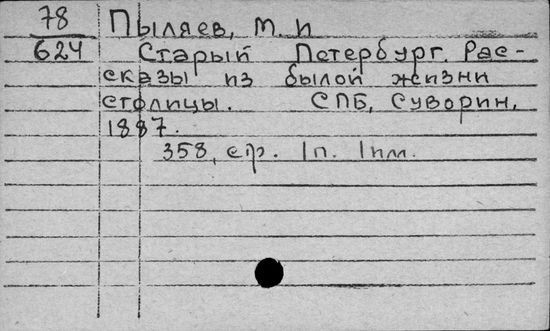 78 Пыляев, М. И
624 Старый Петербург. Рас-
сказы из былой жизни
столицы. СПБ, Суворин,
1887.
358, стр. 1п. 1пл.